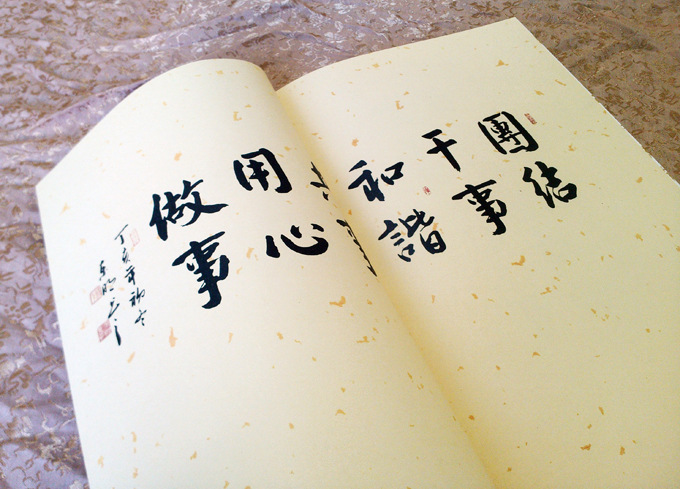 團结
干事
和諧
用心
做事
丁亥年初冬